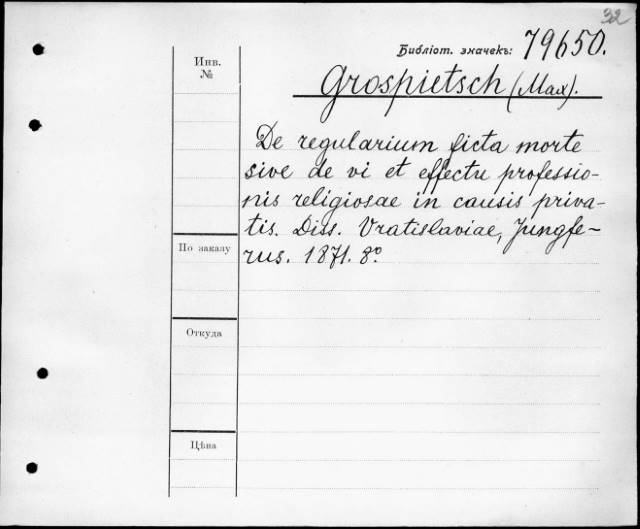 32
Библіот. значекъ: 79650.
Инв.
№
Grospietsch (Max).
De regularium ficta morte
sive de vi et effectu professio-
nis religiosae in causis priva-
tis. Diss. Vratislaviae, Jungfe-
rus. 1871. 8°.
По заказу
Откуда
Цѣна